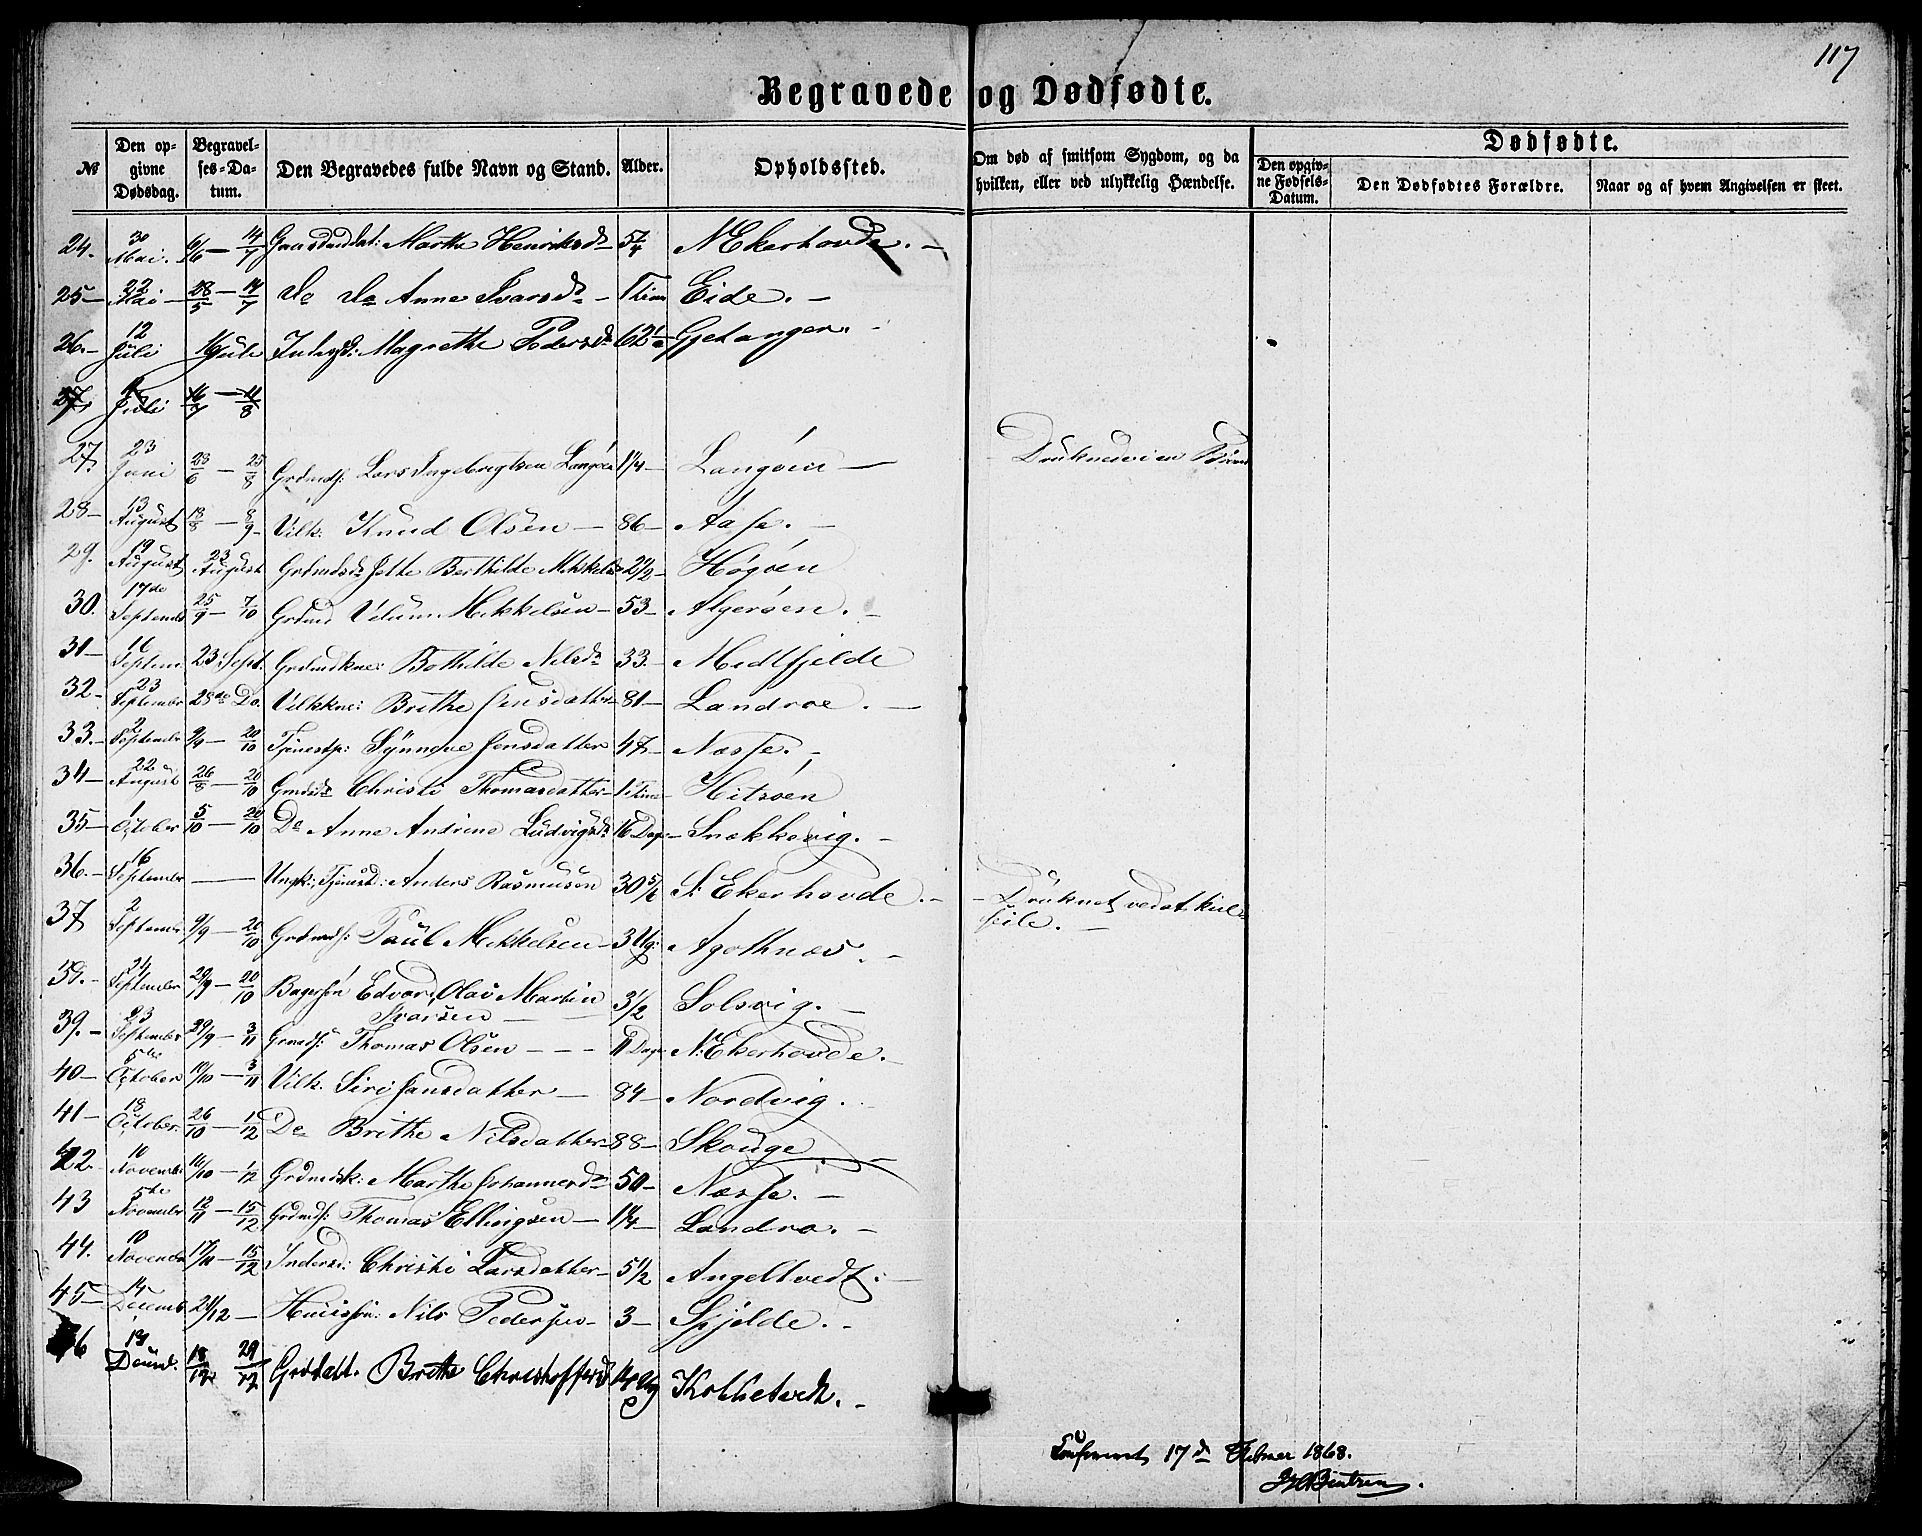 117
Begravede og Dødfødte.
№ Den opgivne Dødsdag. Begravelses-Datum. Den Begravedes fulde Navn og Stand. Alder. Opholdssted. Om død af smitsom Sygdom, og da hvilken, eller ved ulykkelig Hændelse. Dødfødte. Den opgivne Fødsels-Datum. Den Dødfødtes Forældre. Naar og af hvem Angivelsen er skeet.
24. 30 Mai. 6/6 — 14/7 Marthe Henriksd N Ekerhovde. —
25 — 22 Mai — 28/5 — 14/7 Do Do Anne Ivarsd — 1 Time Eide. —
26. — 12 Juli Juli Magrethe Pedersd 62 Gjetanger. -
27. Juli 16/7 — 11/8
27. 23 Juni 28/6 — 25/8 Grdmds: Lars Ingebrigtsen Langöen 1 1/4 — Langöen — Druknede i en Brønd
28 — 13 August 18/8 — 8/9 — Vilk: Knud Olsen — 86 — Aase. —
29. 19 August 23 August Grdmdsd Jethe Berthilde Mikkelsd 2 1/2 — Høgöen
30. 17de Septembr 25/9 — 7/10 Grdmd Villum Mikkelsen — 53 — Algeröen. —
31 — 16 Septem 23 Sept. Grdmdkne: Bothilde Nilsd 33. — Midtfjelde
32 — 23 Septembr 28de Do. Vilkkne: Brithe Jensdatter — 81 — Landroe. —
33. — 2 Septembr 9/9 — 20/10 Tjenestp: Synneve Jensdatter 47 — Næsse. —
34 — 22 August 26/8 — 20/10 Grmdsd Christi Thomasdatter — 1 Time — Hitsöen
35 — 1 October 5/10 — 20/10 Do Anne Andrine Ludvigsd 16 Dage — Snekkevig. —
36. — 16 Septembr — Ungk: Tjenest: Anders Rasmusen 30 5/6 S: Ekerhovde. — — Druknet ved at
seile. —
37 2 Septembr 9/9 — 20/10 Grdmds: Paul Mikkelsen — 3 Ug: Agothnæs. —
38. — 24 Septembr 29/9 — 20/10 Bagersön Edvard Olai Martin 3 1/2 Solsvig. —
Ivarsen —
39. — 23 September 29/9 — 3/11 Grmds: Thomas Olsen — — — 11 Dage N: Ekerhovde. —
40 — 5te October 10/10 — 3/11 Vilk. Siri Jansdatter — 84 — Nordvig. —
41 — 18 October. 26/10 — 1/12 Do Brithe Nilsdatter — 88 — Skouge
42. — 10 Novembr 16/10 — 1/12 Grdmdsk: Marthe Johannesd 50 — Næsse. —
43 5te Novembr 12/11 — 15/12 Grdmds: Thomas Ellingsen — 1 1/4 — Landro. —
44. 10 Novembr 17/10 — 15/12 Indersd: Christi Larsdatter — 5 1/2 Angeltvedt. —
45 — 14 Decemb 21/12 — Huussön: Nils Pedersen — 3 — Spjelde. —
46 13 Decmb. 18/12 29/12 Grdsdatt. Brithe Christoffersd 14 Kolltveit. —
Confereret 17de Februar 1868.